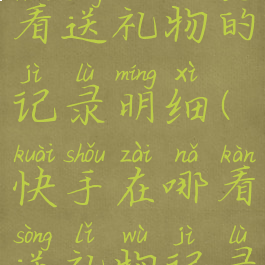 看送礼物的
jì lù míng xì
记录明细(
kuài shǒu zài nǎ kàn
快手在哪看
sòng lǐ wù jì lù
送礼物记录